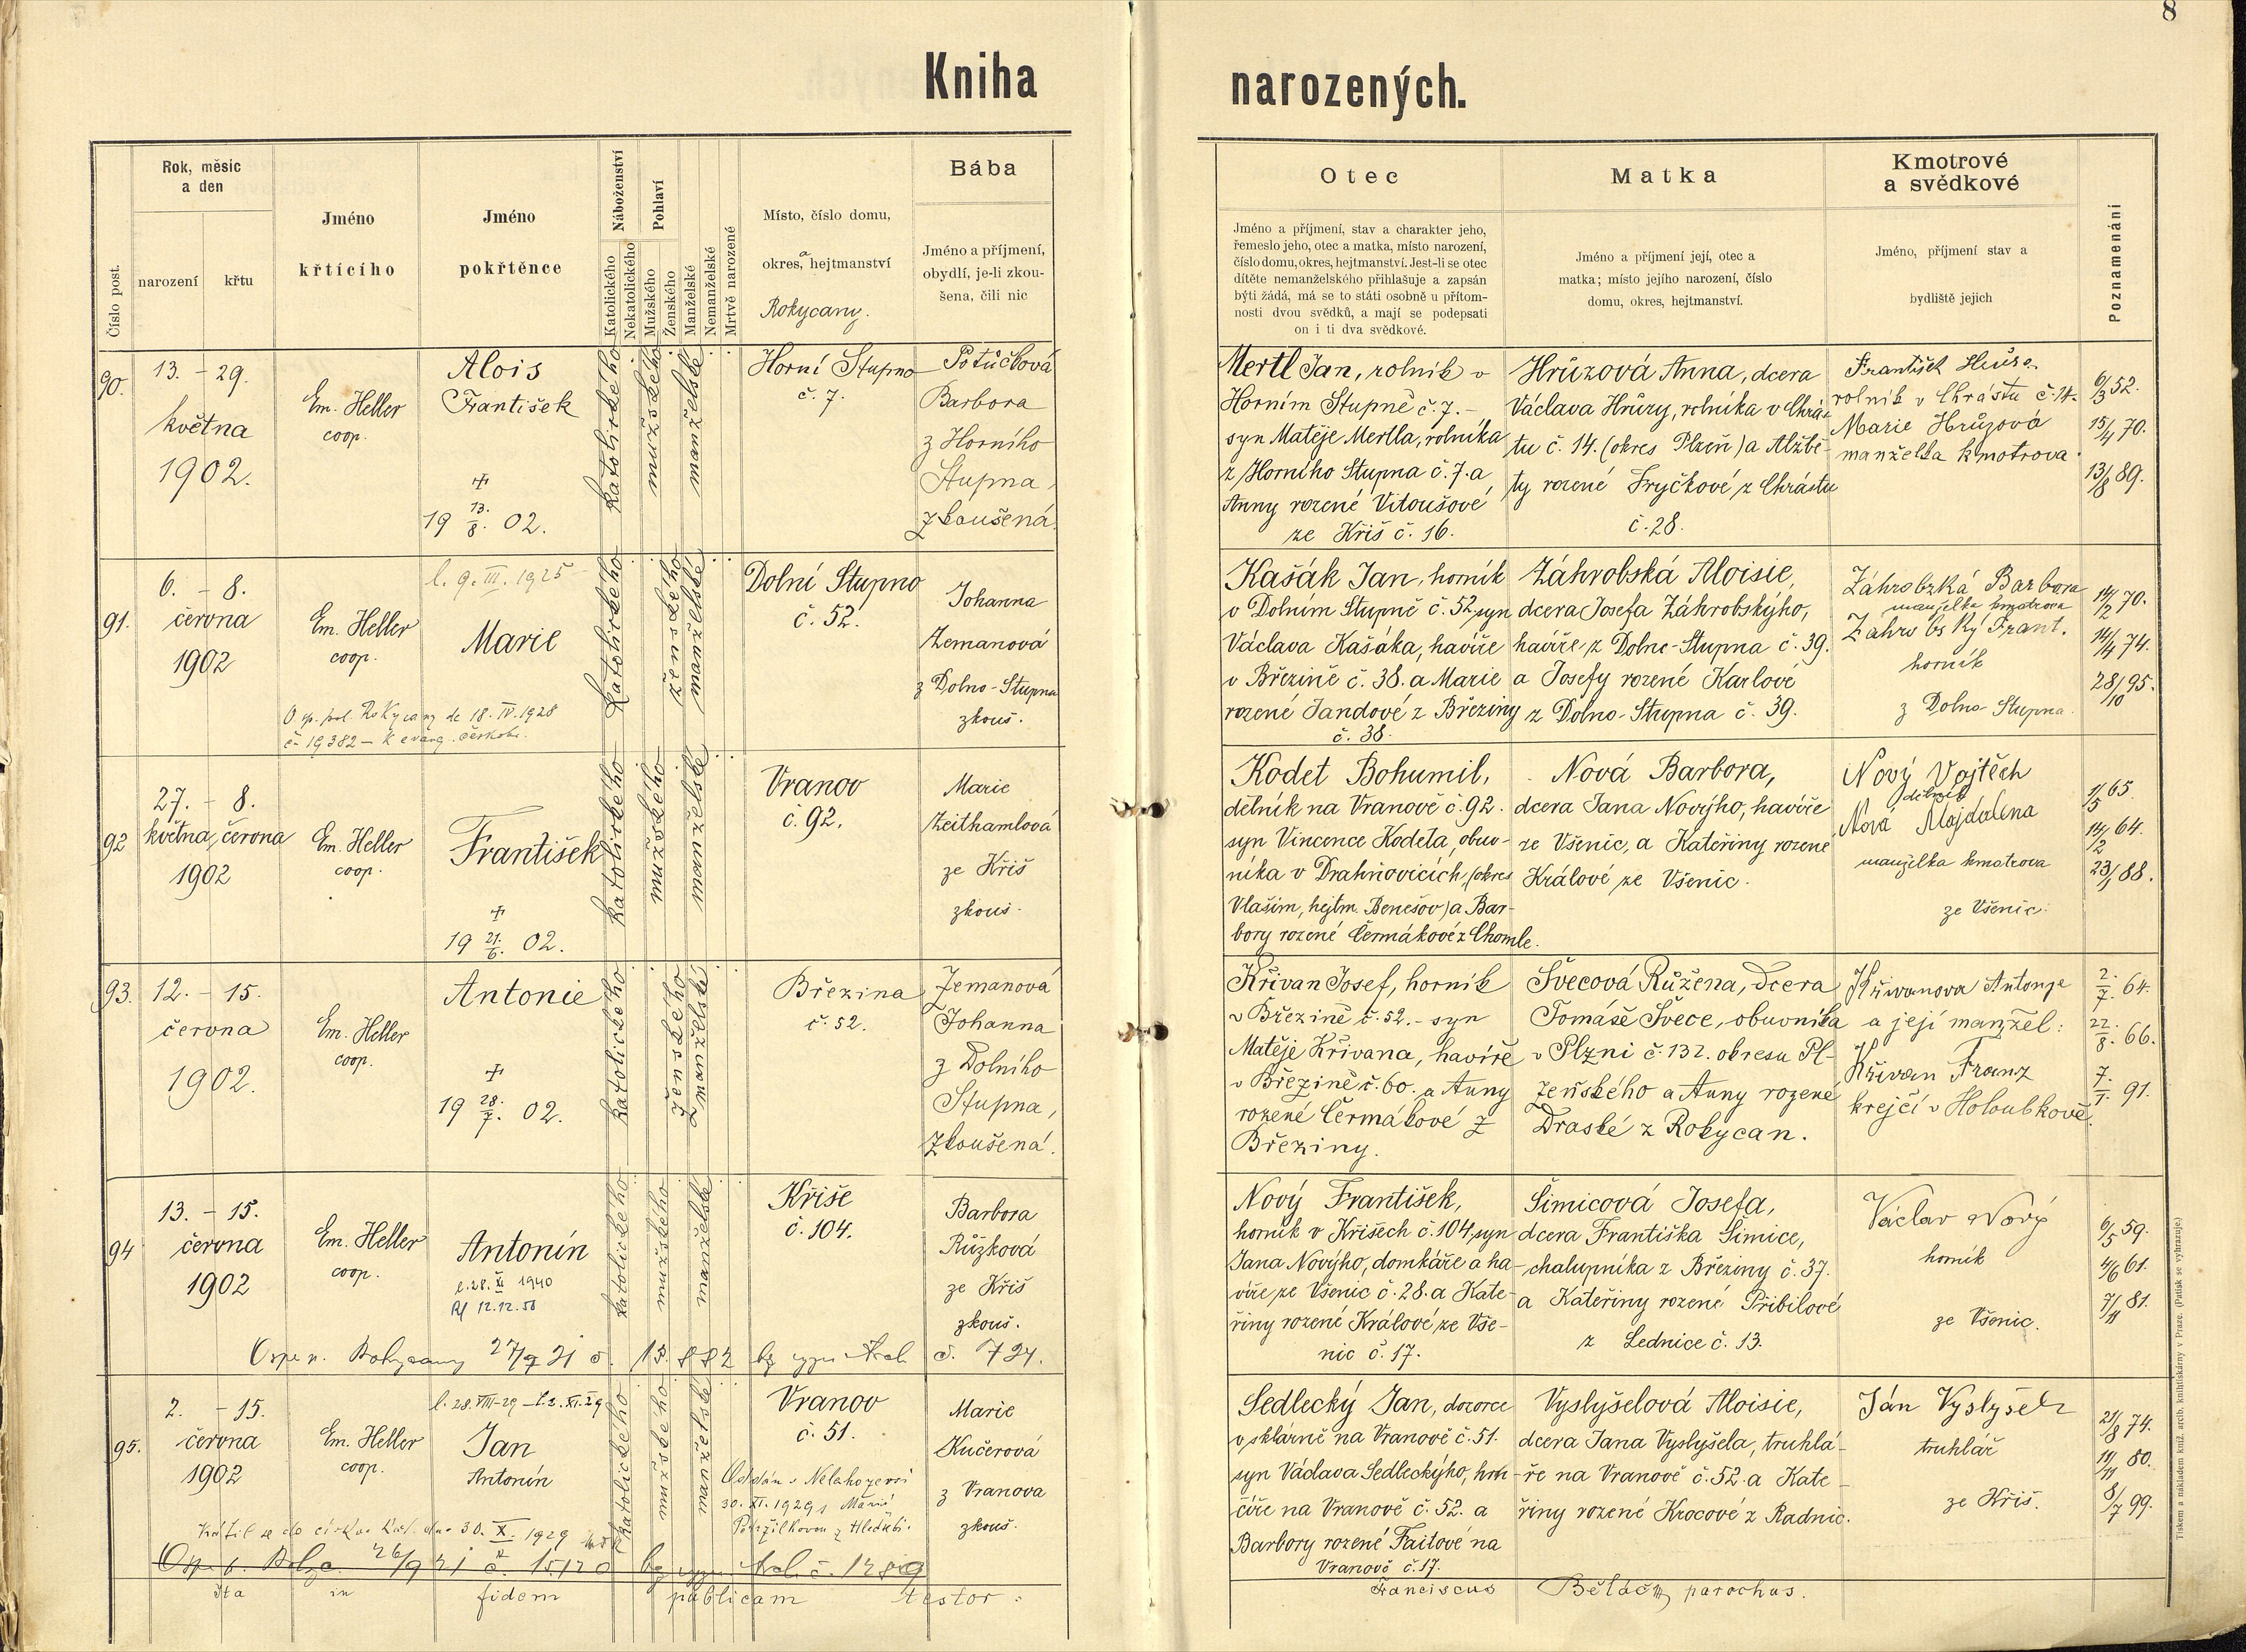 8
Kniha narozených.
Číslo post.
Rok, měsíc
a den
narození
křtu
Jméno
křtícího
Jméno
pokřtěnce
Náboženství
Katolického
Nekatolického
Pohlaví
Mužského
Ženského
Manželské
Nemanželské
Mrtvě narozené
Místo, číslo domu,
okres, a hejtmanství
Rokycany.
Bába
Jméno a příjmení,
obydlí, je-li zkou-
šena, čili nic
Otec
Jméno a příjmení, stav a charakter jeho,
řemeslo jeho, otec a matka, místo narození,
číslo domu, okres, hejtmanství. Jest-li se otec
dítěte nemanželského přihlašuje a zapsán
býti žádá, má se to státi osobně u přítom-
nosti dvou svědků, a mají se podepsati
on i ti dva svědkové.
Matka
Jméno a příjmení její, otec a
matka; místo jejího narození, číslo
domu, okres, hejtmanství.
Kmotrové
a svědkové
Jméno, příjmení stav a
bydliště jejich
Poznamenání
90.
13. - 29.
května
1902.
Em. Heller
coop.
Alois
František
+
19 13./8. 02.
katolického
mužského
manželské
Horní Stupno
č. 7.
Potůčková
Barbora
z Horního
Stupna,
zkoušená.
Mertl Jan, rolník v
Horním Stupně č. 7. -
syn Matěje Mertla, rolníka
z Horního Stupna č. 7. a
Anny rozené Vitoušové
ze Kříš č. 16.
Hrůzová Anna, dcera
Václava Hrůzy, rolníka v Chrás-
tu č. 14. (okres Plzeň) a Alžbě-
ty rozené Fryčkové z Chrástu
č. 28.
František Hrůza
rolník v Chrástu č. 14.
Marie Hrůzová
manželka kmotrova.
6/3 52.
15/4 70.
13/8 89.
91.
6. - 8.
června
1902
Em. Heller
coop.
l. 9. III. 1925
Marie
O sp. pol. Rokycany de 18. IV. 1928
č. 19382 - k evang. českobr.
katolického
ženského
manželské
Dolní Stupno
č. 52.
Johanna
Zemanová
z Dolno-Stupna
zkouš.
Kašák Jan, horník
v Dolním Stupně č. 52, syn
Václava Kašáka, havíře
v Březině č. 38. a Marie
rozené Jandové z Březiny
č. 38.
Záhrobská Aloisie,
dcera Josefa Záhrobskýho,
havíře z Dolno-Stupna č. 39.
a Josefy rozené Karlové
z Dolno-Stupna č. 39.
Záhrobzká Barbora
manželka kmotrova
Záhrobský Frant.
horník
z Dolno-Stupna.
14/2 70.
14/4 74.
28/10 95.
92
27. - 8.
května, června
1902
Em. Heller
coop.
František
+
19 21./6. 02.
katolického
mužského
manželské
Vranov
č. 92.
Marie
Zeithamlová
ze Kříš
zkouš.
Kodet Bohumil,
dělník na Vranově č. 92.
syn Vincence Kodeta, obuv-
níka v Drahňovicích (okres
Vlašim, hejtm. Benešov) a Bar-
bory rozené Čermákové z Chomle.
Nová Barbora,
dcera Jana Novýho, havíře
ze Všenic, a Kateřiny rozené
Králové ze Všenic.
Nový Vojtěch
dělník
Nová Majdalena
manželka kmotrova
ze Všenic.
1/5 65.
14/2 64.
23/1 88.
93.
12. - 15.
června
1902.
Em. Heller
coop.
Antonie
+
19 28./7. 02.
katolického
ženského
manželské
Březina
č. 52.
Zemanová
Johanna
z Dolního
Stupna,
zkoušená.
Křivan Josef, horník
v Březině č. 52. - syn
Matěje Křivana, havíře
v Březině č. 60. a Anny
rozené Čermákové z
Březiny.
Švecová Růžena, dcera
Tomáše Švece, obuvníka
v Plzni č. 132. okresu Pl-
zeňského a Anny rozené
Draské z Rokycan.
Křivanova Antonje
a její manžel:
Křivan Franz
krejčí v Holoubkově.
2./7. 64.
22./8. 66.
7./1. 91.
94
13. - 15.
června
1902
Em. Heller
coop.
Antonín
l. 28. XI 1940
Rf 12.12.58
katolického
mužského
manželské
Kříše
č. 104.
Barbora
Růžková
ze Kříš
zkouš.
Rokycany 27/9 21 č. 15882 č. 724.
Nový František,
horník v Kříšech č. 104, syn
Jana Novýho, domkáře a ha-
víře ze Všenic č. 28. a Kate-
řiny rozené Králové ze Vše-
nic č. 17.
Šimicová Josefa,
dcera Františka Šimice,
chalupníka z Březiny č. 37.
a Kateřiny rozené Přibilové
z Lednice č. 13.
Václav Nový
horník
ze Všenic.
6/5 59.
4/6 61.
7/11 81.
95.
2. - 15.
června
1902
Em. Heller
coop.
l. 28. VIII-29 - l. 2. XI. 29
Jan
Antonín
katolického
mužského
manželské
Vranov
č. 51.
Oddán v Nelahozevsi
30. XI. 1929 s Marií
z Hleďsebi.
Marie
Kučerová
z Vranova
zkouš.
Vrátil se do církve kat. dne 30. X. 1929
26/9 21 č. 15120
Sedlecký Jan, dozorce
v sklárně na Vranově č. 51.
syn Václava Sedleckýho, hrn-
číře na Vranově č. 52. a
Barbory rozené Faitové na
Vranově č. 17.
Vyslyšelová Aloisie,
dcera Jana Vyslyšela, truhlá-
ře na Vranově č. 52. a Kate-
řiny rozené Krocové z Radnic.
Ján Vyslyšel
truhlář
ze Kříš.
21/8 74.
19/11 80.
8/7 99.
ita in fidem publicam testor:
Franciscus Běláč parochus.
Tiskem a nákladem kníž. arcib. knihtiskárny v Praze. (Patisk se vyhrazuje.)